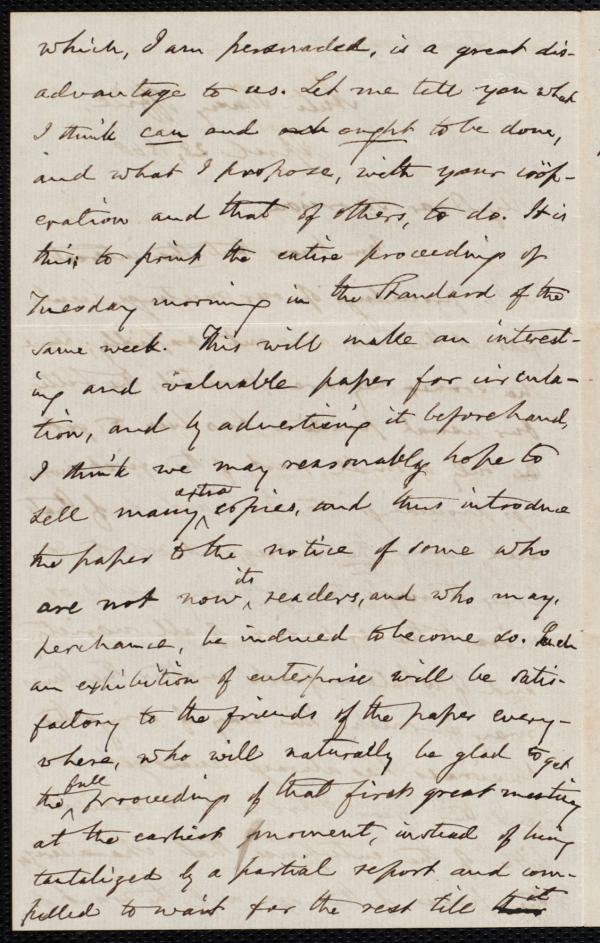 which, I am persuaded, is a great dis-
advantage to us. Let me tell you what
I think can and ought to be done,
and what I propose, with your coöp-
eration and that of others, to do. It is
this: to print the entire proceedings of
Tuesday morning in the Standard of the
same week. This will make an interest-
ing and valuable paper for circula-
tion, and by advertising it beforehand,
I think we may reasonably hope to
sell many extra copies, and thus introduce
the paper to the notice of some who
are not now its readers, and who may,
perchance, be induced to become so. Such
an exhibition of enterprise will be satis-
factory to the friends of the paper every-
where, who will naturally be glad to get
the full proceedings of that first great meeting
at the earliest moment, instead of being
tantalized by a partial report and com-
pelled to wait for the rest till it